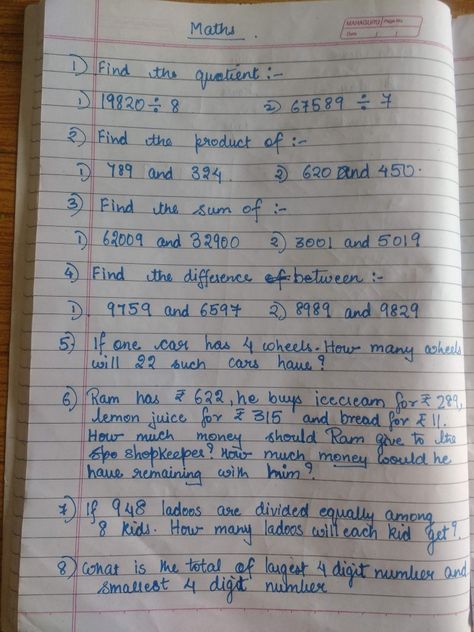 Maths.
MAHAGURU Page No.
Date / /
1) Find the quotient :-
1) 19820 ÷ 8 2) 67589 ÷ 7
2) Find the product of :-
1) 789 and 324. 2) 620 and 450.
3) Find the sum of :-
1) 62009 and 32900 2) 3001 and 5019
4) Find the difference of between :-
1) 9759 and 6597 2) 8989 and 9829
5) If one car has 4 wheels. How many wheels
will 22 such cars have?
6) Ram has ₹ 622, he buys icecream for ₹ 289,
lemon juice for ₹ 315 and bread for ₹ 11.
How much money should Ram give to the
spo shopkeeper? How much money would he
have remaining with him?
7) If 948 ladoos are divided equally among
8 kids. How many ladoos will each kid get?
8) What is the total of largest 4 digit number and
smallest 4 digit number